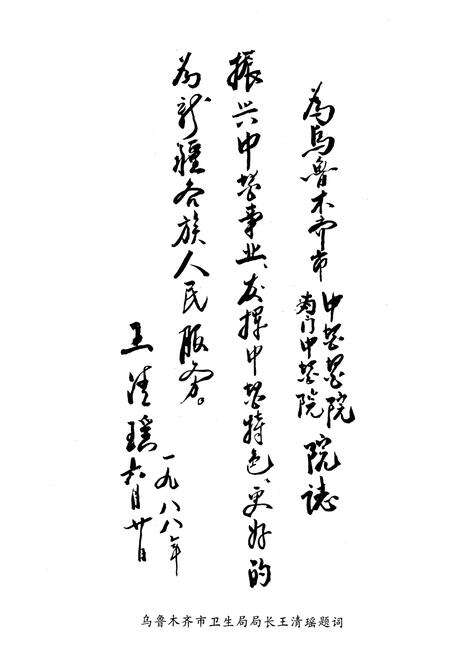 為乌鲁木齐市
中医医院
门中医院
院誌
振兴中医事业、发挥中医特色、更好的
為新疆各族人民服务。
王清瑶
一九八八年
六月廿日
乌鲁木齐市卫生局局长王清瑶题词